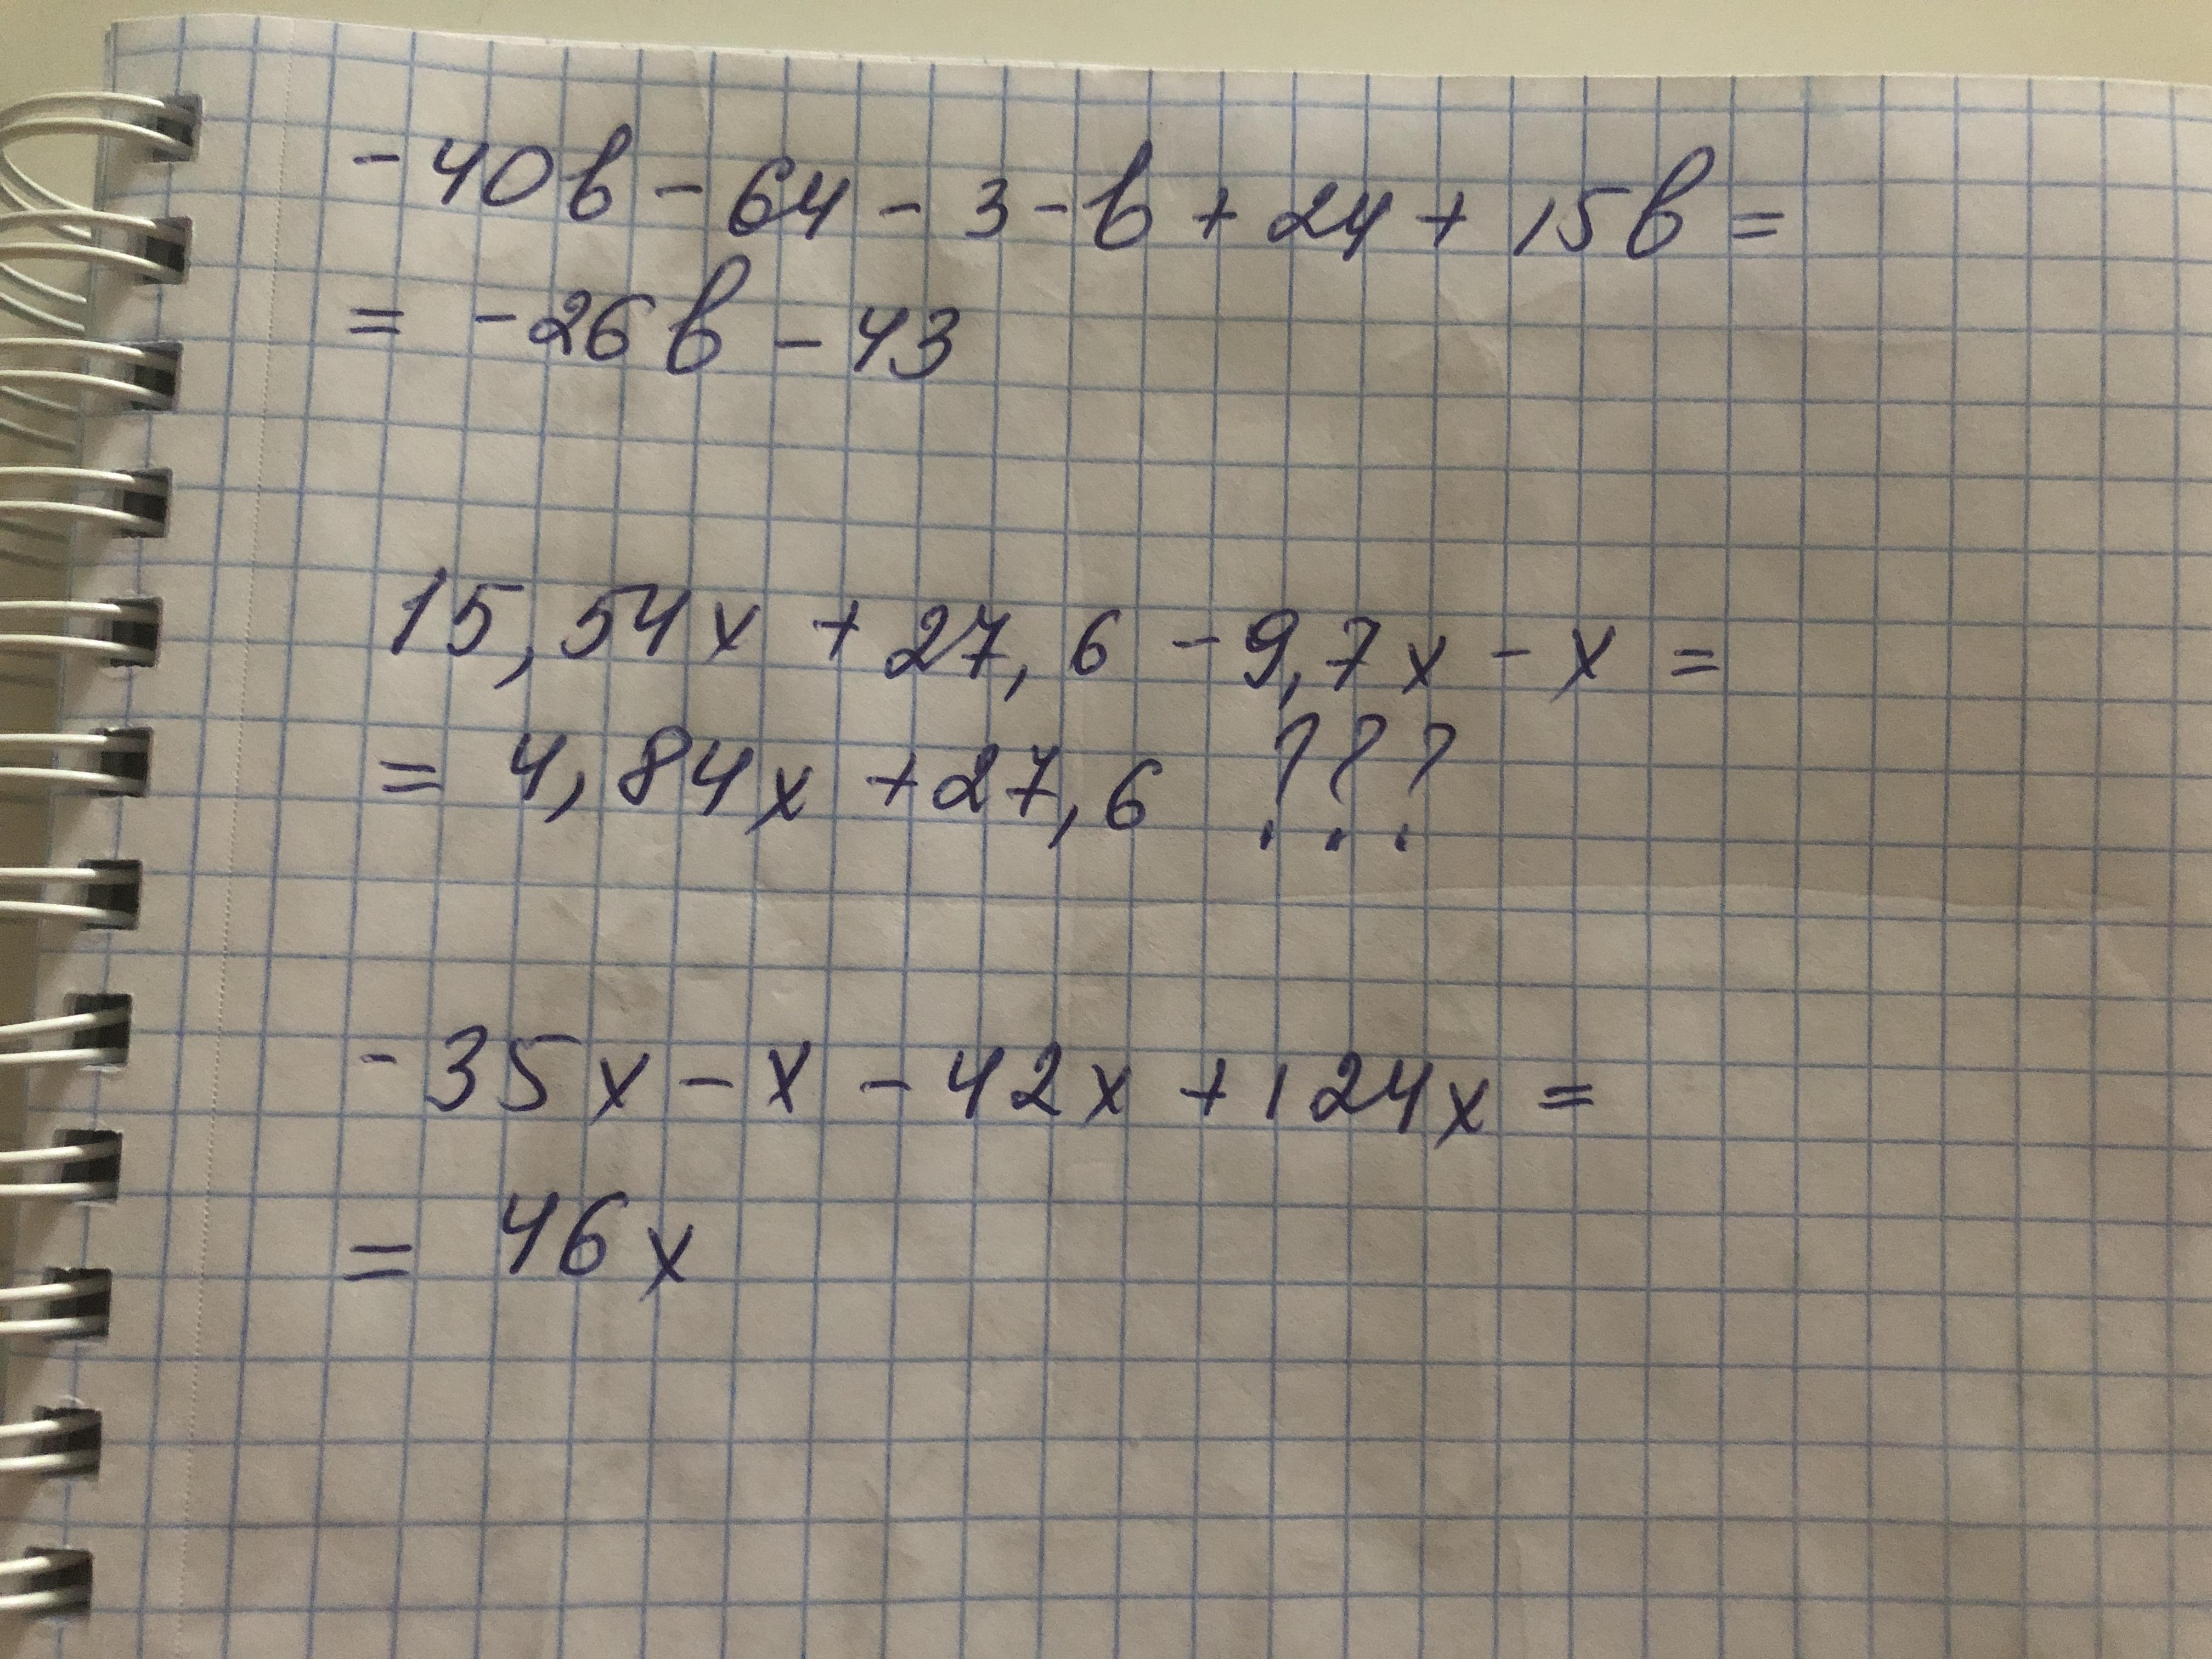 -40b - 64 - 3 - b + 24 + 15b =
= -26b - 43
15,54x + 27,6 - 9,7x - x =
= 4,84x + 27,6 ???
-35x - x - 42x + 124x =
= 46x